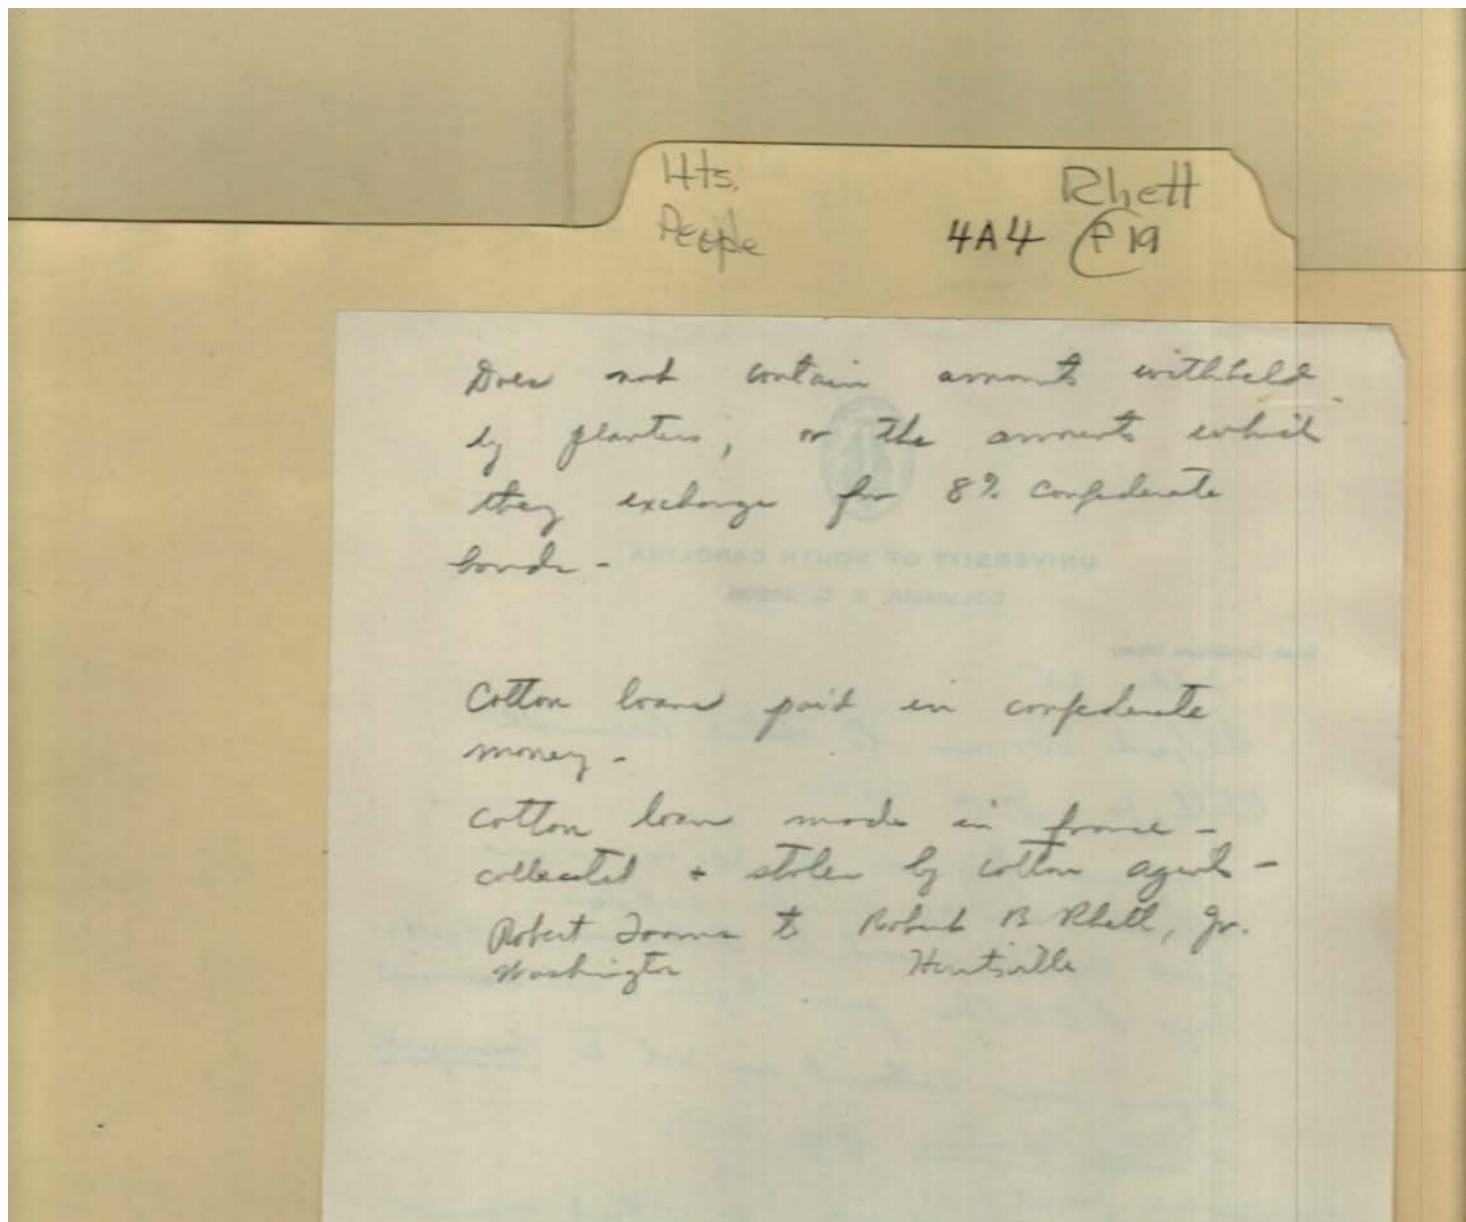 Hts. Rhett
People 4A4 P19
Does not contain amounts withheld
by planters, or the amounts which
they exchange for 8% Confederate
bonds -
UNIVERSITY OF SOUTH CAROLINA
COLUMBIA, S. C. 29208
Cotton loans paid in confederate
money -
Cotton loan made in france -
collected + stolen by cotton agents -
Robert Toombs to Robert B Rhett, Jr.
Washington Huntsville